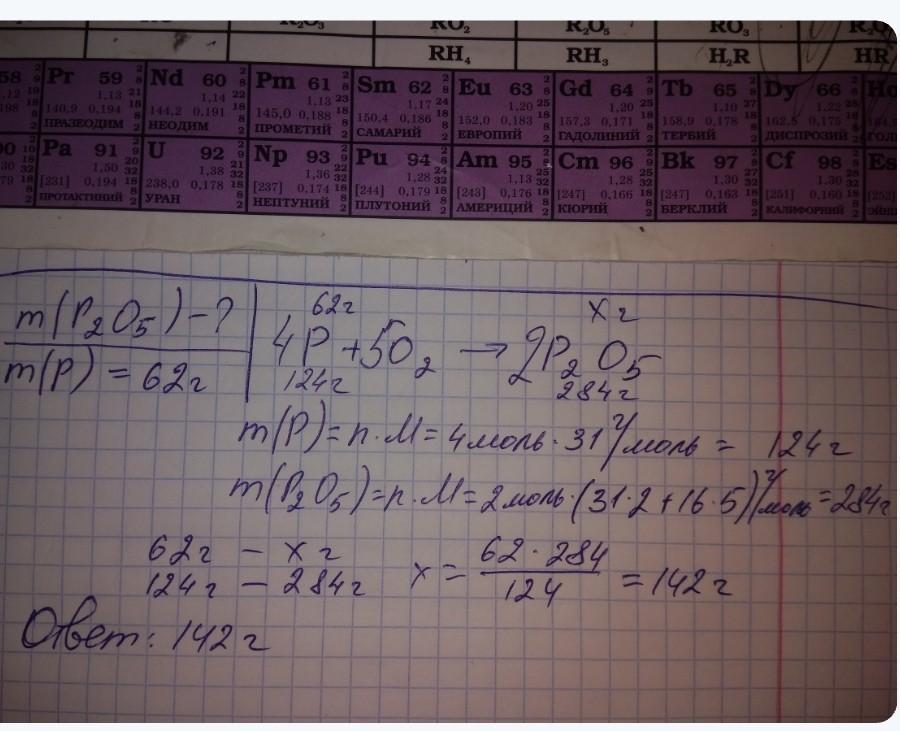 R₂O₃ RO₂ R₂O₅ RO₃
RH₄ RH₃ H₂R HR
58 Pr 59 Nd 60 Pm 61 Sm 62 Eu 63 Gd 64 Tb 65 Dy 66 Ho
1,13 1,14 1,13 1,17 1,20 1,20 1,10 1,22
140,9 0,194 144,2 0,191 145,0 0,188 150,4 0,186 152,0 0,183 157,3 0,171 158,9 0,178 162,5 0,175
ПРАЗЕОДИМ НЕОДИМ ПРОМЕТИЙ САМАРИЙ ЕВРОПИЙ ГАДОЛИНИЙ ТЕРБИЙ ДИСПРОЗИЙ
90 Pa 91 U 92 Np 93 Pu 94 Am 95 Cm 96 Bk 97 Cf 98 Es
1,50 1,38 1,36 1,28 1,13 1,28 1,30 1,30
[231] 0,194 238,0 0,178 [237] 0,174 [244] 0,179 [243] 0,176 [247] 0,166 [247] 0,163 [251] 0,160 [252]
ПРОТАКТИНИЙ УРАН НЕПТУНИЙ ПЛУТОНИЙ АМЕРИЦИЙ КЮРИЙ БЕРКЛИЙ КАЛИФОРНИЙ
m(P₂O₅) – ?
m(P) = 62г
62г x г
4P + 5O₂ → 2P₂O₅
124г 284г
m(P) = n·M = 4моль·31 г/моль = 124г
m(P₂O₅) = n·M = 2моль·(31·2 + 16·5) г/моль = 284г
62г – x г
124г – 284г
x = 62·284 / 124 = 142г
Ответ: 142г